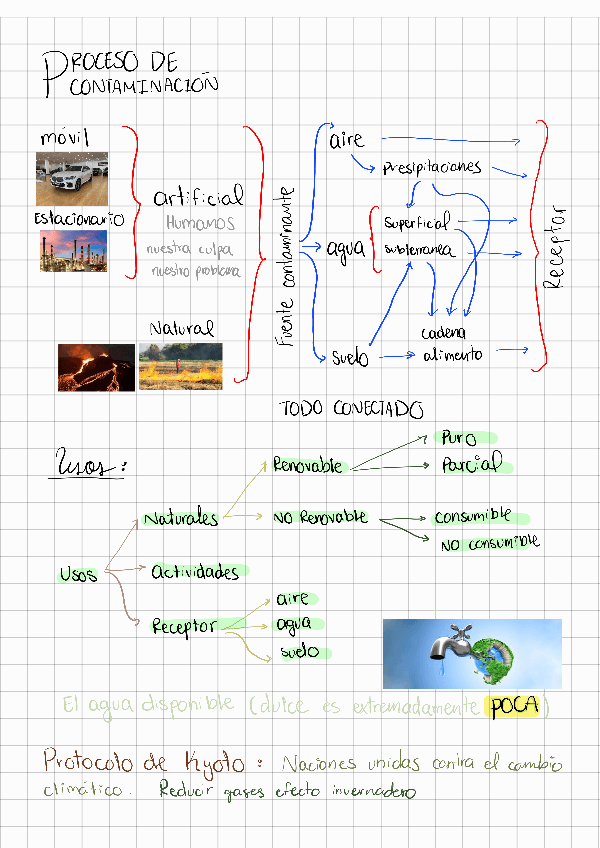 PROCESO DE
CONTAMINACIÓN
móvil
Estacionario
artificial
Humanos
nuestra culpa
nuestro problema
Natural
Fuente contaminante
aire
presipitaciones
agua
superficial
subterranea
suelo
cadena
alimento
Receptor
TODO CONECTADO
Usos:
Usos
Naturales
Renovable
Puro
Parcial
NO Renovable
consumible
NO consumible
Actividades
Receptor
aire
agua
suelo
El agua disponible (dulce es extremadamente POCA)
Protocolo de Kyoto: Naciones unidas contra el cambio
climático. Reducir gases efecto invernadero